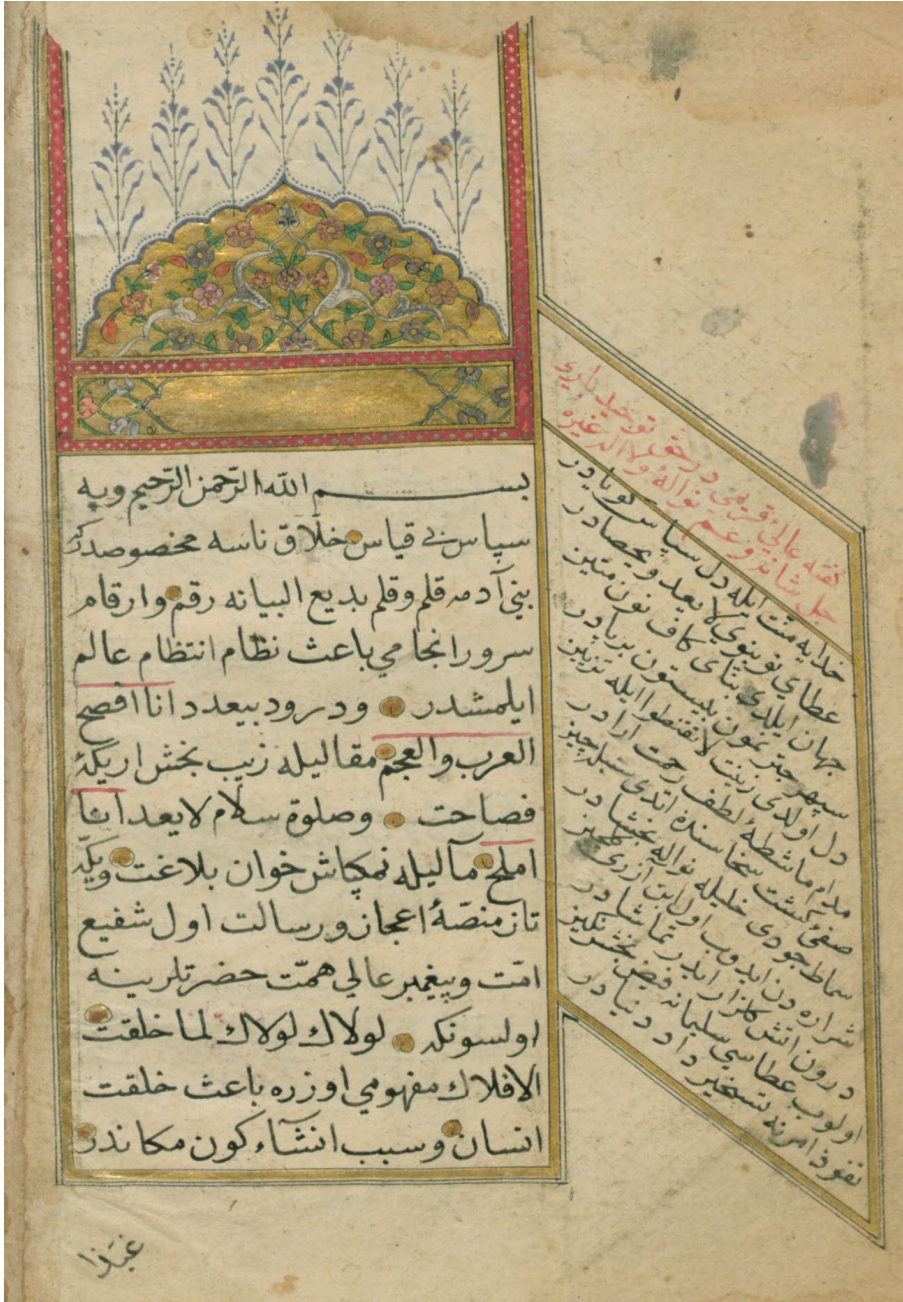 بسم الله الرحمن الرحيم وبه
سپاس بى قياس خلاق ناسه مخصوصدركه
بنى آدمه قلم وقلم بديع البيانه رقم وارقام
سرور انجامي باعث نظام انتظام عالم
ايلمشدر ودرود بيعدد انا افصح
العرب والعجم مقاليله زيب بخش اريكهٔ
فصاحت وصلوة سلام لايعد انا
املح مآليله نمكپاش خوان بلاغت ويكّه
تاز منصّهٔ اعجاز ورسالت اول شفيع
امّت وپيغمبر عالي همّت حضرتلرينه
اولسونكه لولاك لولاك لما خلقت
الافلاك مفهومي اوزره باعث خلقت
انسان وسبب انشآء كون مكاندر
كفته عالئ قريمى در حق توحيد بارى
جل شانه وعم نواله ولا اله غيره
خدايه منّت ايله دل سپاس كويادر
عطاي نو بنوي لايعد ويحصادر
جهان ايلدى بناى كاف نون متين
سپهر خيمه‌كون بيستون برپادر
دل اولدى زينت لاتقنطوا ايله تزيين
مدام ماشطهٔ لطف رحمت ارادر
صفئ بهشت سخاسنده اتدى سيله چيز
سماط جودى خليله نواله بخشادر
شراره دن ايدوب اول ابن ازرى
درون اتش كلزار ايلدر تماشادر
اولوب عطاسي سليمانه فيض بخش نكين
نفوذ امرنه تسخير داد دنيادر